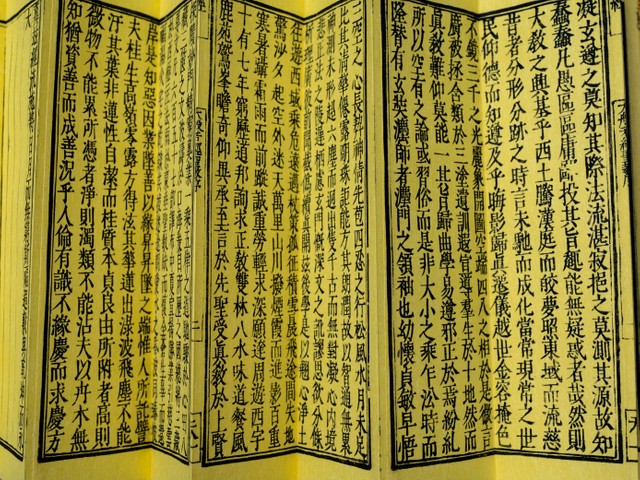 凝玄遵之莫知其際法流湛寂挹之莫測其源故知
蠢蠢凡愚區區庸鄙投其旨趣能無疑惑者哉然則
大教之興基乎西土騰漢庭而皎夢照東域而流慈
昔者分形分跡之時言未馳而成化當常現常之世
民仰德而知遵及乎晦影歸真遷儀越世金容掩色
不鏡三千之光麗象開圖空端四八之相於是微言
廣被拯含類於三塗遺訓遐宣導羣生於十地然而
真教難仰莫能一其旨歸曲學易遵邪正於焉紛糾
所以空有之論或習俗而是非大小之乘乍沿時而
隆替有玄奘法師者法門之領袖也幼懷貞敏早悟
三空之心長契神情先苞四忍之行松風水月未足
比其清華僊露明珠詎能方其朗潤故以智通無累
神測未形超六塵而迥出隻千古而無對凝心內境
悲正法之陵遲栖慮玄門慨深文之訛謬思欲分條
析理廣彼前聞截偽續真開茲後學是以翹心淨土
往遊西域乘危遠邁杖策孤征積雪晨飛途間失地
驚沙夕起空外迷天萬里山川撥煙霞而進影百重
寒暑躡霜雨而前蹤誠重勞輕求深願達周遊西宇
十有七年窮歷道邦詢求正教雙林八水味道餐風
鹿苑鷲峯瞻奇仰異承至言於先聖受真教於上賢
岸是知惡因業墜善以緣昇昇墜之端惟人所託譬
夫桂生高嶺零露方得泫其華蓮出淥波飛塵不能
汙其葉非蓮性自潔而桂質本貞良由所附者高則
微物不能累所憑者淨則濁類不能沾夫以卉木無
知猶資善而成善況乎人倫有識不緣慶而求慶方